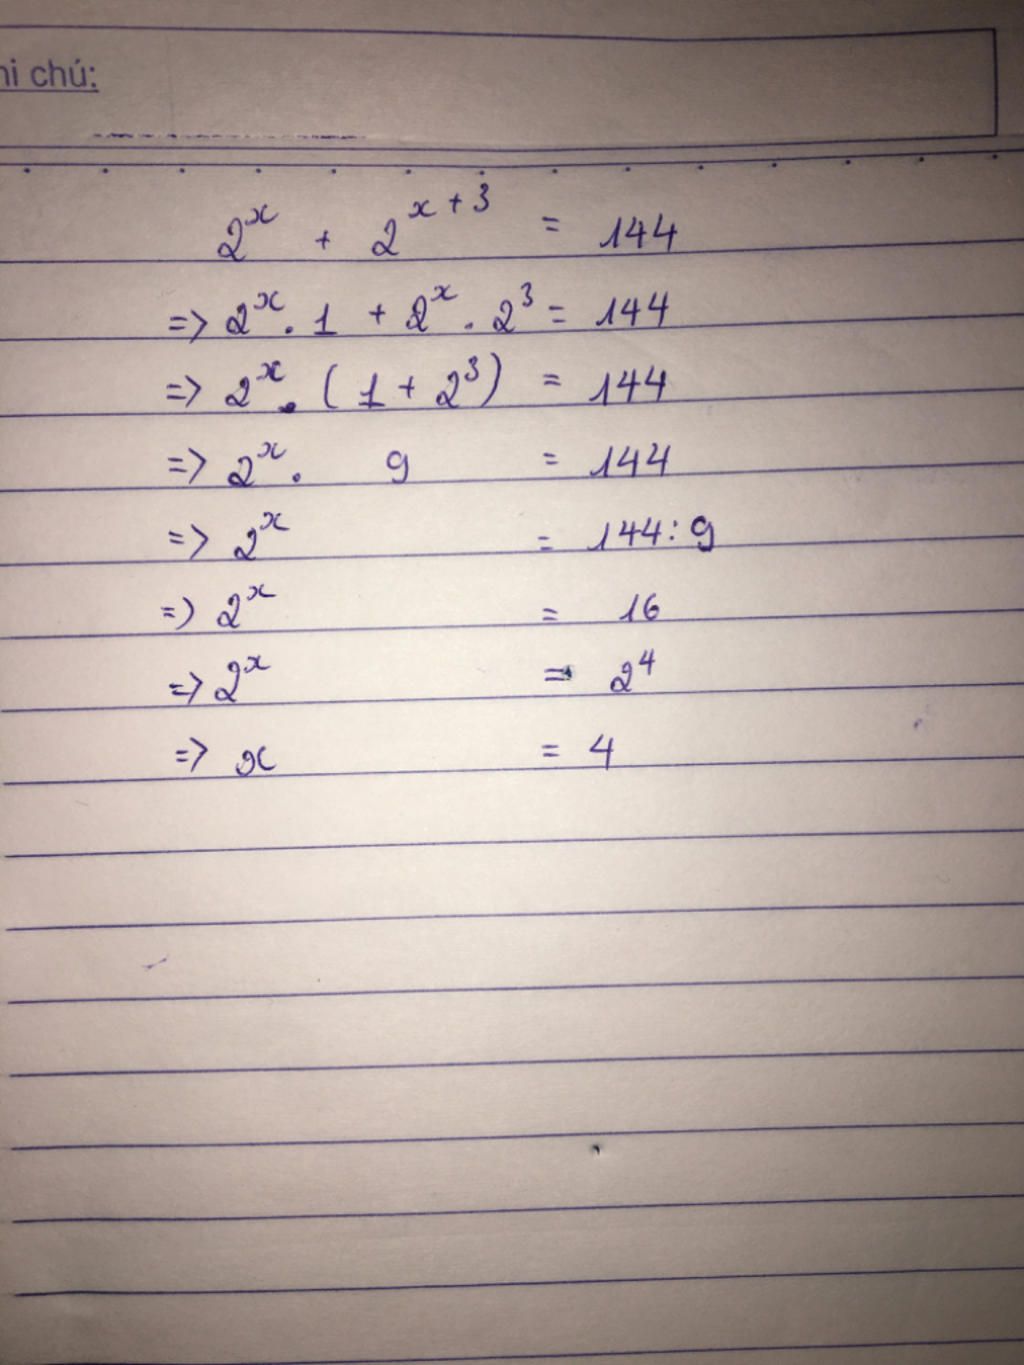 hi chú:
2^x + 2^{x+3} = 144
=> 2^x . 1 + 2^x . 2^3 = 144
=> 2^x . (1 + 2^3) = 144
=> 2^x . 9 = 144
=> 2^x = 144 : 9
=> 2^x = 16
=> 2^x = 2^4
=> x = 4